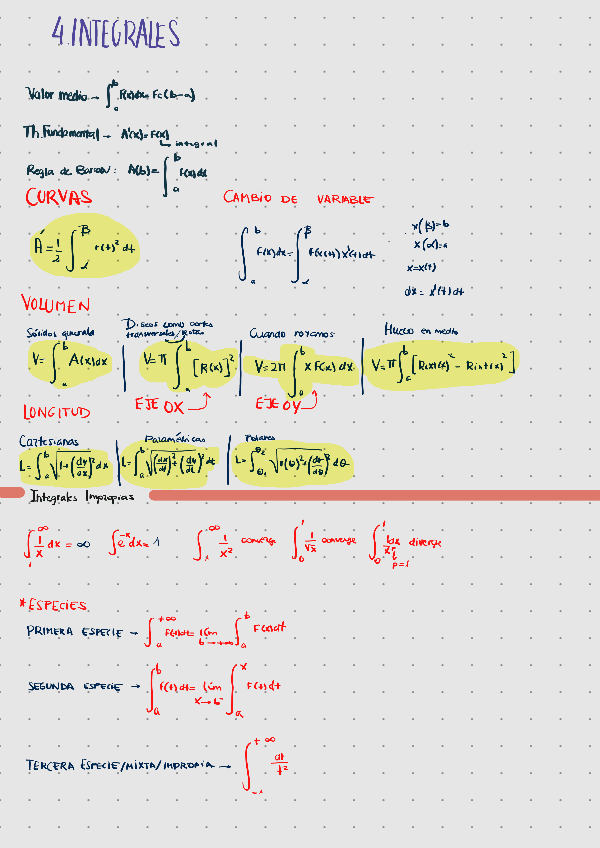 4. INTEGRALES
Valor medio → ∫_a^b f(x)dx = F(c)(b-a)
Th. Fundamental → A'(x) = F(x)
↳ integral
Regla de Barrow: A(b) = ∫_a^b f(x)dx
CURVAS
CAMBIO DE VARIABLE
A = 1/2 ∫_α^β r(t)² dt
∫_a^b F(x)dx = ∫_α^β F(x(t)) x'(t) dt
x(β)=b
x(α)=a
x=x(t)
dx = x'(t)dt
VOLUMEN
Sólidos generale
V = ∫_a^b A(x)dx
Discos como cortes
transversales/Rotan
V = π ∫_a^b [R(x)]²
EJE OX
Cuando rotamos
V = 2π ∫_a^b x F(x) dx
EJE OY
Hueco en medio
V = π ∫_a^b [Rext(x)² - Rint(x)²]
LONGITUD
Cartesianas
L = ∫_a^b √(1+(dy/dx)²) dx
Paramétricas
L = ∫_a^b √((dx/dt)²+(dy/dt)²) dt
Polares
L = ∫ √(r(θ)²+(dr/dθ)²) dθ
Integrales Impropias
∫_1^∞ 1/x dx = ∞
∫ e^-x dx = 1
∫_1^∞ 1/x² converge
∫_0^1 1/√x converge
∫_0^1 diverge
p=1
*ESPECIES
PRIMERA ESPECIE → ∫_a^+∞ F(t)dt = lim b→+∞ ∫_a^b F(t)dt
SEGUNDA ESPECIE → ∫_a^b f(t)dt = lim x→b⁻ ∫_a^x F(t)dt
TERCERA ESPECIE/MIXTA/IMPROPIA → ∫^+∞ dt/t²